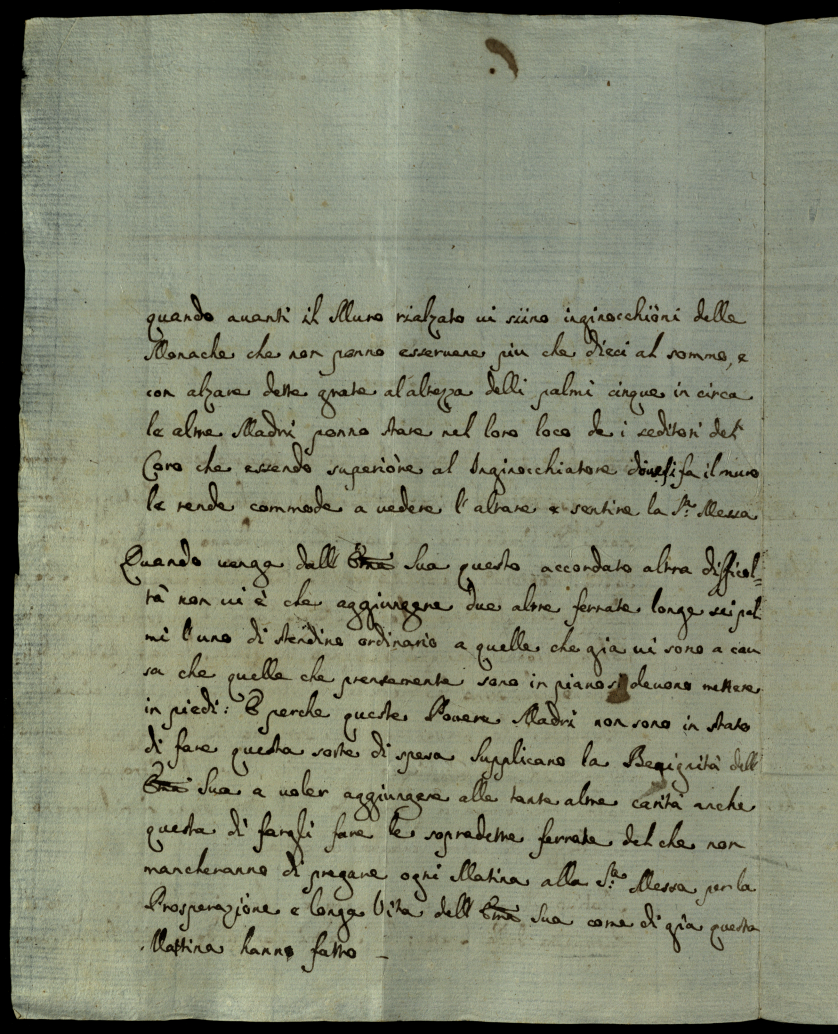 quando auanti il Muro rialzato ui siino inginocchioni delle
Monache che non ponno esseruene piu che dieci al sommo, e
con alzare dette grate al altezza delli palmi cinque in circa
le altre Madri ponno stare nel loro loco de i seditori del
Coro che essendo superiore al Inginocchiatore doue si fa il muro
le rende commode a uedere l'altare e sentire la S.ta Messa
Quando uenga dall Em.a Sua questo accordato altra difficol=
tà non ui è che aggiungere due altre ferrate longe sei pal
mi l'una di stendine ordinario a quelle che gia ui sono a cau
sa che quelle che presamente sono in piano si deuono mettere
in piedi: E perche queste Pouere Madri non sono in stato
di fare questa sorte di spesa supplicano la Benignità dell
Em.a Sua a uoler aggiungere alle tante altre carità anche
questa di fargli fare le sopradette ferrate del che non
mancheranno di pregare ogni Matina alla S.ta Messa per la
Prosperazione e longa Vita dell Em.a Sua come di già questa
Mattina hanno fatto